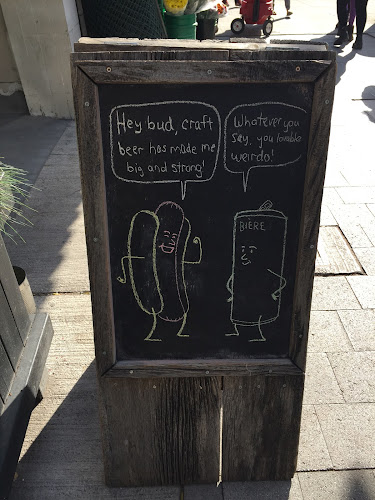 Hey bud, craft
beer has made me
big and strong!
Whatever you
say, you lovable
weirdo!
BIERE